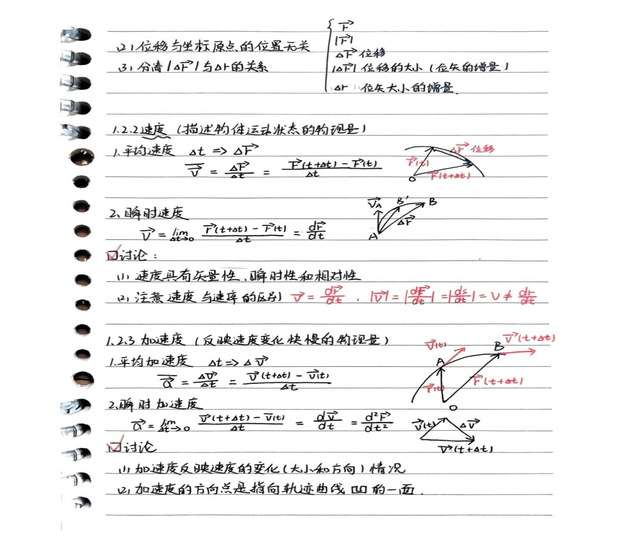 { r⃗
|r⃗|
(2) 位移与坐标原点的位置无关
Δr⃗ 位移
(3) 分清|Δr⃗|与Δr的关系
|Δr⃗| 位移的大小 (位矢的增量)
Δr 位矢大小的增量.
1.2.2 速度 (描述物体运动状态的物理量)
1.平均速度 Δt => Δr⃗
v̅⃗ = Δr⃗/Δt = (r⃗(t+Δt) - r⃗(t))/Δt
r⃗(t) Δr⃗ 位移 r⃗(t+Δt) O
2.瞬时速度
v⃗ = lim Δt→0 (r⃗(t+Δt) - r⃗(t))/Δt = dr⃗/dt
V⃗A B' B Δr⃗ A
☑讨论:
(1) 速度具有矢量性,瞬时性和相对性
(2) 注意速度与速率的区别 v⃗ = dr⃗/dt , |v⃗| = |dr⃗/dt| = |ds/dt| = v ≠ dr/dt
1.2.3 加速度 (反映速度变化快慢的物理量)
1.平均加速度 Δt => Δv⃗
a̅⃗ = Δv⃗/Δt = (v⃗(t+Δt) - v⃗(t))/Δt
v⃗(t) v⃗(t+Δt) A B r⃗(t) r⃗(t+Δt) O
2.瞬时加速度
a⃗ = lim Δt→0 (v⃗(t+Δt) - v⃗(t))/Δt = dv⃗/dt = d²r⃗/dt²
v⃗(t) Δv⃗ v⃗(t+Δt)
☑讨论
(1) 加速度反映速度的变化(大小和方向)情况
(2) 加速度的方向点是指向轨迹曲线凹的一面.